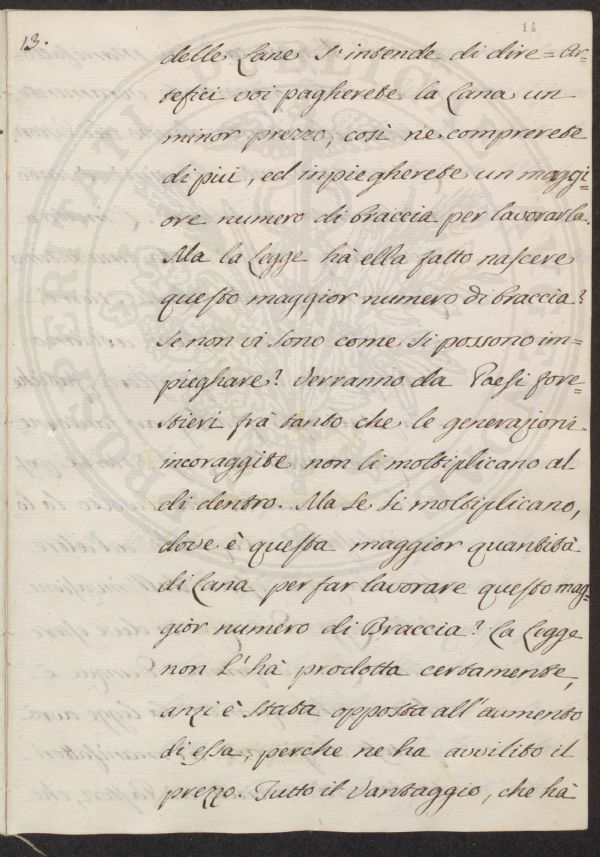 13.
delle Lane s'intende di dire = Ar=
tefici voi pagherete la Lana un
minor prezzo, così ne comprerete
di più, ed inpiegherete un maggi=
ore numero di braccia per lavorarla.
Ma la Legge hà ella fatto nascere
questo maggior numero di braccia?
Se non vi sono come si possono im=
pieghare? Verranno da Paesi fore=
stieri frà tanto che le generazioni
incoraggite non li moltiplicano al
di dentro. Ma se si moltiplicano,
dove è questa maggior quantità
di Lana per far lavorare questo mag=
gior numero di Braccia? La Legge
non l'hà prodotta certamente,
anzi è stata opposta all'aumento
di essa, perche ne ha avvilito il
prezzo. Tutto il Vantaggio, che hà